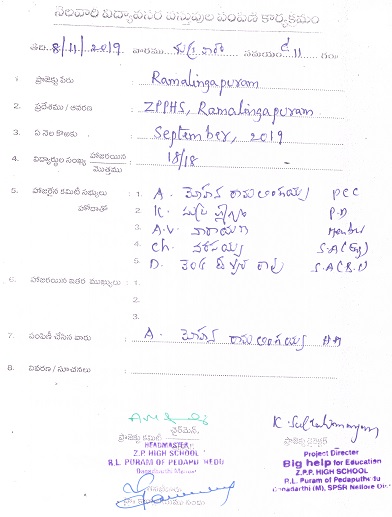 నెలవారి విద్యావసర వస్తువుల పంపిణి కార్యక్రమం
తేది: 8/11/2019 వారము శుక్రవారం సమయం 11 గం.
1. ప్రాజెక్టు పేరు : Ramalingapuram
2. ప్రదేశము / ఆవరణ : ZPPHS, Ramalingapuram
3. ఏ నెల కొఱకు : September, 2019
4. విద్యార్థుల సంఖ్య హాజరయిన / మొత్తము : 18/18
5. హాజరైన కమిటీ సభ్యులు హోదాతో : 1. A. మోహన రామలింగయ్య PCC
2. K. సుబ్రహ్మణ్యం P.D
3. A.V. నారాయణ Member
4. Ch. S.A (Eng)
5. D.
6. హాజరయిన ఇతర ముఖ్యులు : 1.
2.
3.
7. పంపిణీ చేసిన వారు : A. మోహన రామలింగయ్య HM
8. వివరణ / సూచనలు :
ప్రాజెక్టు కమిటీ ఛైర్మెన్,
HEADMASTER
Z.P. HIGH SCHOOL
R.L. PURAM OF PEDAPUTHEDU
K. Subrahmanyam
Project Director
Big help for Education
Z.P.P. HIGH SCHOOL
R.L. Puram of Pedaputhedu
(M), SPSR Nellore Dt.